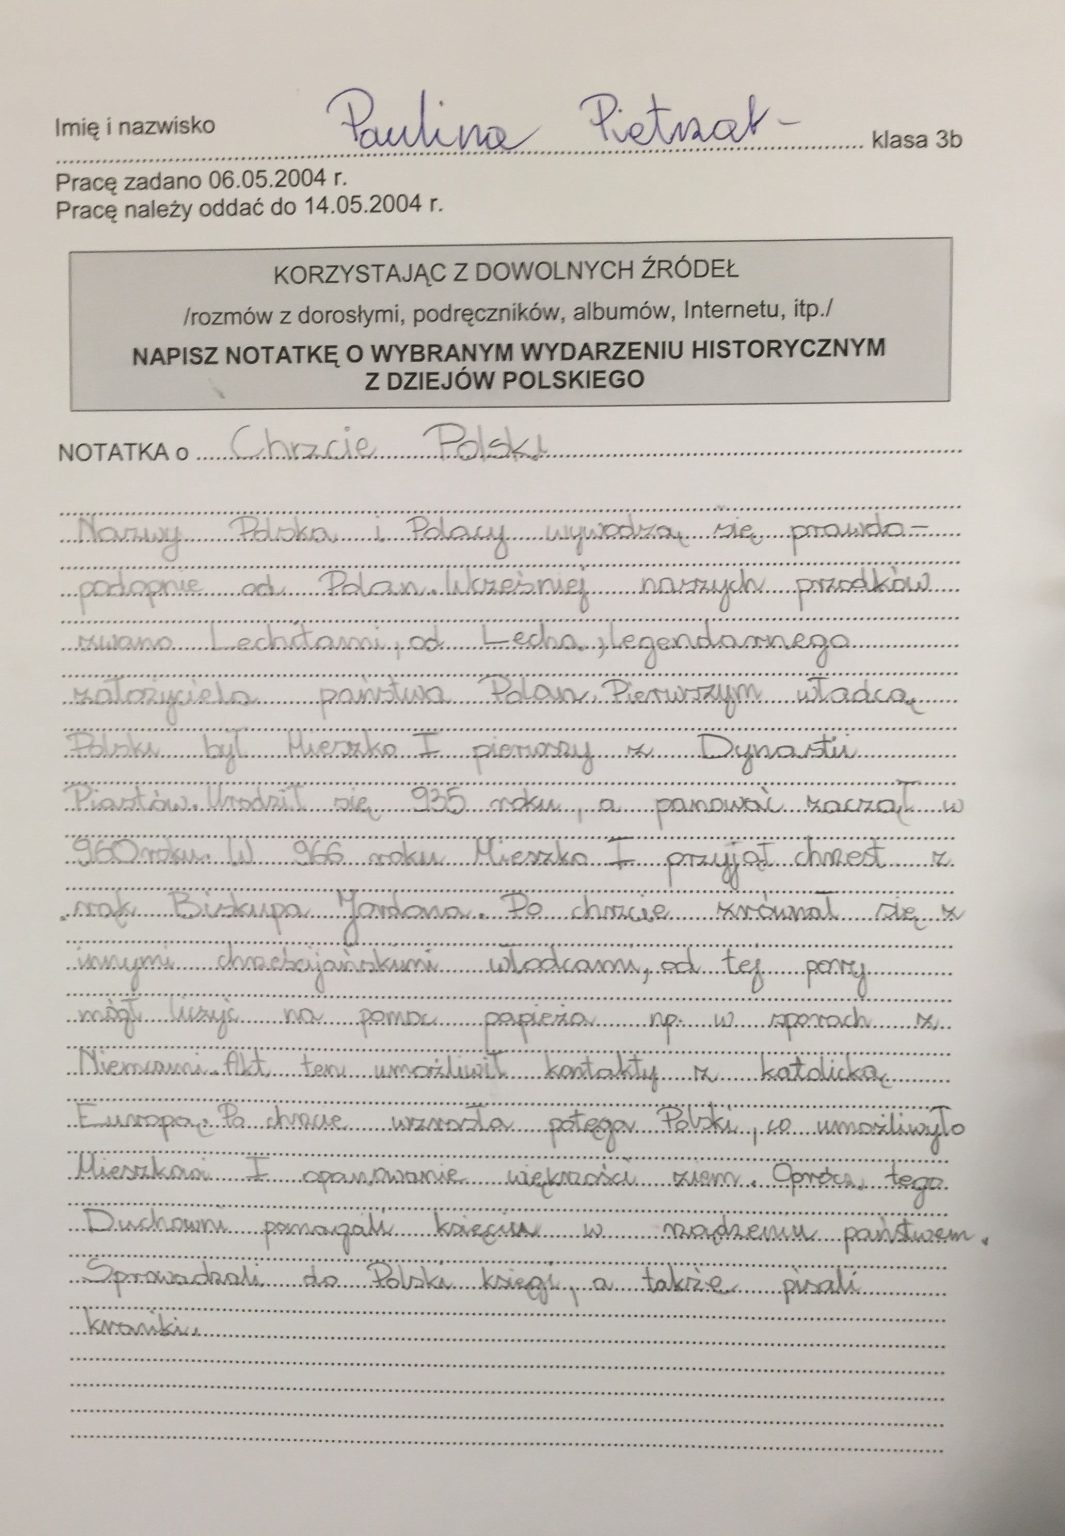 Imię i nazwisko Paulina Pietrzak klasa 3b
Pracę zadano 06.05.2004 r.
Pracę należy oddać do 14.05.2004 r.
KORZYSTAJĄC Z DOWOLNYCH ŹRÓDEŁ
/rozmów z dorosłymi, podręczników, albumów, Internetu, itp./
NAPISZ NOTATKĘ O WYBRANYM WYDARZENIU HISTORYCZNYM
Z DZIEJÓW POLSKIEGO
NOTATKA o Chrzcie Polski
Nazwy Polska i Polacy wywodzą się prawdo-
podopnie od Polan. Wcześniej naszych przodków
zwano Lechitami, od Lecha, legendarnego
założyciela państwa Polan. Pierwszym władcą
Polski był Mieszko I pierwszy z Dynastii
Piastów. Urodził się 935 roku, a panować zaczął w
960 roku. W 966 roku Mieszko I przyjął chrzest z
rąk Biskupa Jordana. Po chrzcie zrównał się z
innymi chrześcijańskimi władcami, od tej pory
mógł liczyć na pomoc papieża np. w sporach z
Niemcami. Akt ten umożliwił kontakty z katolicką
Europą. Po chrzcie wzrosła potęga Polski, co umożliwyło
Mieszkowi I opanowanie większości ziem. Oprócz tego
Duchowni pomagali księciu w rządzeniu państwem.
Sprowadzali do Polski księgi, a także pisali
kroniki.